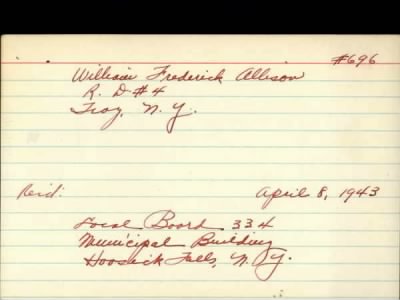 #696
William Frederick Allison
R. D #4
Troy, N. Y.
Recd: April 8, 1943
Local Board 334
Municipal Building
Hoosick Falls, N. Y.